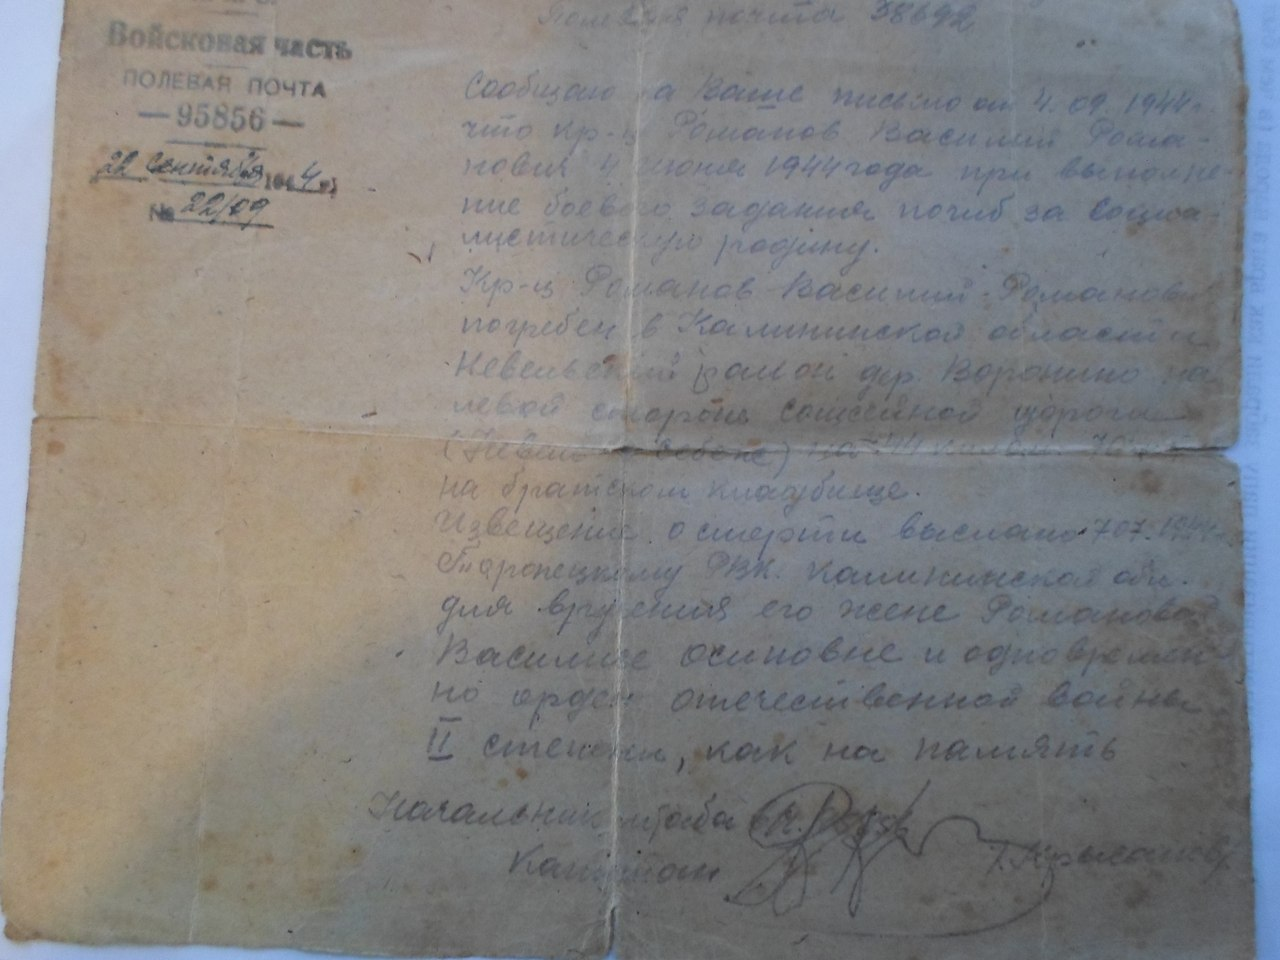 Полевая почта 38692
Войсковая часть
ПОЛЕВАЯ ПОЧТА
— 95856 —
22 сентября 1944 г.
№ 22/09
Сообщаю на Ваше письмо от 4.09.1944г.
что кр-ц Романов Василий Рома-
нович 4 июня 1944 года при выполне-
ние боевого задания погиб за социа-
листическую родину.
Кр-ц Романов Василий Романович
погребен в Калининской области
Невельский район дер. Воронино на
левой стороне дороги
(Невель
на братском кладбище.
Извещение о смерти выслано 7.07.1944г.
Торопецкому РВК. Калининской обл.
для вручения его жене Романовой
Василисе Осиповне и одновремен
но орден отечественной войны
II степени, как на память
Начальник штаба
Капитан